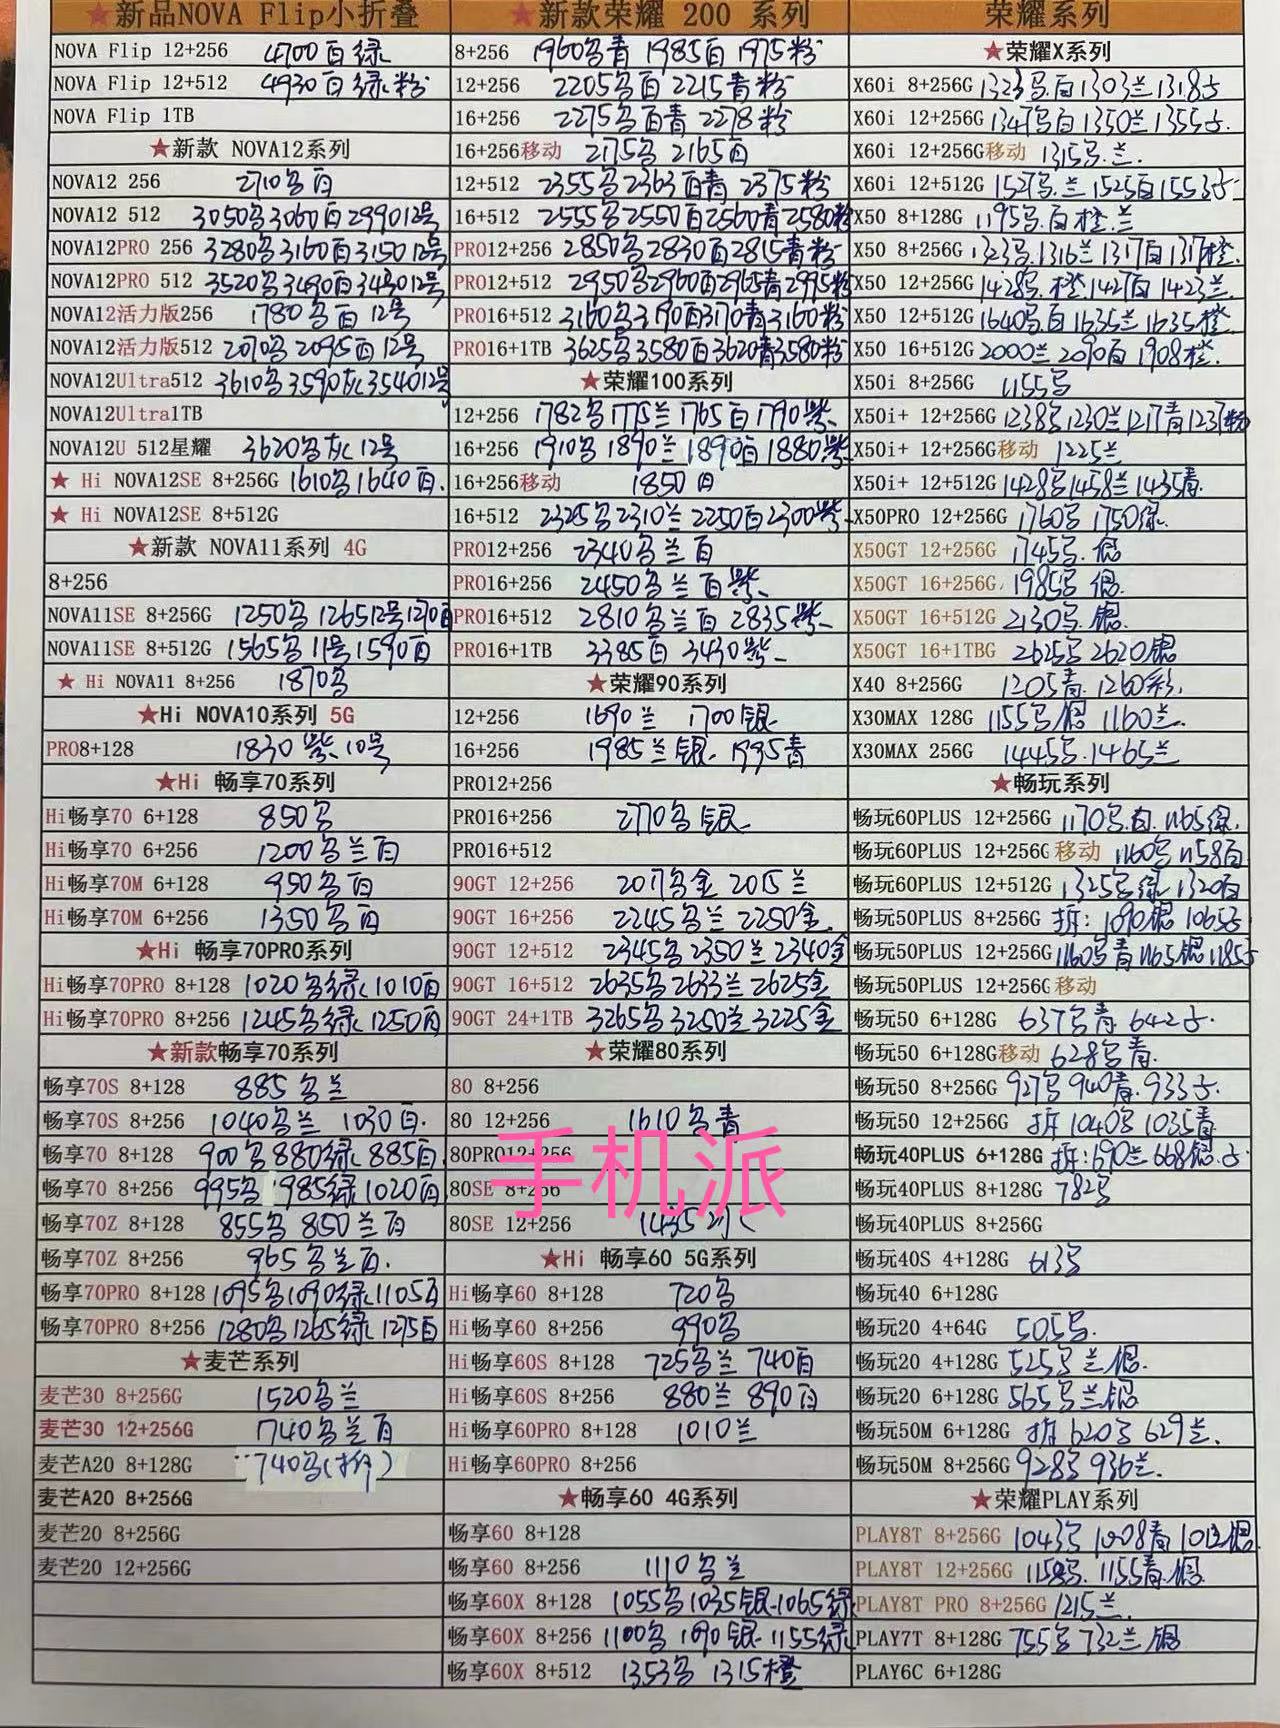 ★新品NOVA Flip小折叠
NOVA Flip 12+256 4700白绿
NOVA Flip 12+512 4930白绿粉
NOVA Flip 1TB
★新款 NOVA12系列
NOVA12 256 2710黑白
NOVA12 512 3050黑3060白299012号
NOVA12PRO 256 3280黑3160白315012号
NOVA12PRO 512 3520黑3490白343012号
NOVA12活力版256 1780黑白12号
NOVA12活力版512 2070黑2095白12号
NOVA12Ultra512 3610黑3590灰354012号
NOVA12Ultra1TB
NOVA12U 512星耀 3620黑灰12号
★ Hi NOVA12SE 8+256G 1610黑1640白.
★ Hi NOVA12SE 8+512G
★新款 NOVA11系列 4G
8+256
NOVA11SE 8+256G 1250黑 126512号1270白
NOVA11SE 8+512G 1565黑11号1590白
★ Hi NOVA11 8+256 1870黑
★Hi NOVA10系列 5G
PRO8+128 1830紫.10号
★Hi 畅享70系列
Hi畅享70 6+128 850黑
Hi畅享70 6+256 1200黑兰白
Hi畅享70M 6+128 950黑白
Hi畅享70M 6+256 1350黑白
★Hi 畅享70PRO系列
Hi畅享70PRO 8+128 1020黑绿1010白
Hi畅享70PRO 8+256 1245黑绿1250白
★新款畅享70系列
畅享70S 8+128 885黑兰
畅享70S 8+256 1040黑兰 1030白.
畅享70 8+128 900黑880绿885白
畅享70 8+256 995黑 985绿1020白
畅享70Z 8+128 855黑 850兰白
畅享70Z 8+256 965黑兰白.
畅享70PRO 8+128 1095黑1090绿1105白
畅享70PRO 8+256 1280黑1265绿1275白
★麦芒系列
麦芒30 8+256G 1520黑兰
麦芒30 12+256G 1740黑兰白
麦芒A20 8+128G 740黑(拆)
麦芒A20 8+256G
麦芒20 8+256G
麦芒20 12+256G
★新款荣耀 200 系列
8+256 1960黑青1985白1975粉
12+256 2205黑白2215青粉
16+256 2275黑白青2278粉
16+256移动 2175黑2165白
12+512 2355黑2363白青2375粉
16+512 2555黑2550白2560青2580粉
PRO12+256 2850黑2830白2815青粉
PRO12+512 2950黑2960白2965青2995粉
PRO16+512 3160黑3190白3170青3160粉
PRO16+1TB 3625黑3580白3620青3580粉
★荣耀100系列
12+256 1782黑1775兰1765白1790紫
16+256 1910黑1890兰1890白1880紫
16+256移动 1850白
16+512 2325黑2310兰2250白2300紫
PRO12+256 2340黑兰白
PRO16+256 2450黑兰白紫
PRO16+512 2810黑兰白2835紫
PRO16+1TB 3385白3430紫
★荣耀90系列
12+256 1690兰 1700银
16+256 1985兰银.1995青
PRO12+256
PRO16+256 2770黑银
PRO16+512
90GT 12+256 2017黑金2015兰
90GT 16+256 2245黑兰2250金
90GT 12+512 2345黑2350兰2340金
90GT 16+512 2635黑2633兰2625金
90GT 24+1TB 3265黑3250兰3225金
★荣耀80系列
80 8+256
80 12+256 1610黑青
80PRO12+256
80SE 8+256
80SE 12+256 1435
手机派
★Hi 畅享60 5G系列
Hi畅享60 8+128 720黑
Hi畅享60 8+256 990黑
Hi畅享60S 8+128 725黑兰 740白
Hi畅享60S 8+256 880兰 890白
Hi畅享60PRO 8+128 1010兰
Hi畅享60PRO 8+256
★畅享60 4G系列
畅享60 8+128
畅享60 8+256 1110黑兰
畅享60X 8+128 1055黑1035银.1065绿
畅享60X 8+256 1100黑1090银1155绿
畅享60X 8+512 1353黑 1315橙
荣耀系列
★荣耀X系列
X60i 8+256G 1323黑.白1303兰1318
X60i 12+256G 1347黑白1350兰1355
X60i 12+256G移动 1315黑.兰.
X60i 12+512G 1527黑.兰1525白1553
X50 8+128G 1195黑.白橙.兰
X50 8+256G 1323黑.1316兰1317白1317橙.
X50 12+256G 1428黑.橙.1427白1423兰.
X50 12+512G 1640黑.白1635兰1635橙.
X50 16+512G 2000兰2090白1908橙.
X50i 8+256G 1155黑
X50i+ 12+256G 1238黑1230兰1217青1237粉
X50i+ 12+256G移动 1225兰
X50i+ 12+512G 1428黑1458兰1435青.
X50PRO 12+256G 1760黑 1750绿.
X50GT 12+256G 1745黑.银
X50GT 16+256G 1985黑 银.
X50GT 16+512G 2130黑.银.
X50GT 16+1TBG 2625黑2620银
X40 8+256G 1205青.1260彩.
X30MAX 128G 1155黑银 1160兰.
X30MAX 256G 1445黑.1465兰
★畅玩系列
畅玩60PLUS 12+256G 1170黑.白.1165绿.
畅玩60PLUS 12+256G 移动 1160黑1158白
畅玩60PLUS 12+512G 1325黑绿1320白
畅玩50PLUS 8+256G 拆:1090银1065
畅玩50PLUS 12+256G 1160黑青1165银1185
畅玩50PLUS 12+256G移动
畅玩50 6+128G 637黑青642
畅玩50 6+128G移动 628黑青.
畅玩50 8+256G 927黑940青.933
畅玩50 12+256G 拆1040黑1035青
畅玩40PLUS 6+128G 拆:690兰668银.
畅玩40PLUS 8+128G 782黑
畅玩40PLUS 8+256G
畅玩40S 4+128G 613黑
畅玩40 6+128G
畅玩20 4+64G 505黑.
畅玩20 4+128G 525黑兰银.
畅玩20 6+128G 565黑兰银
畅玩50M 6+128G 拆620黑629兰.
畅玩50M 8+256G 928黑936兰.
★荣耀PLAY系列
PLAY8T 8+256G 1043黑1008青1012银
PLAY8T 12+256G 1158黑.1155青.银
PLAY8T PRO 8+256G 1215兰.
PLAY7T 8+128G 755黑732兰 银
PLAY6C 6+128G